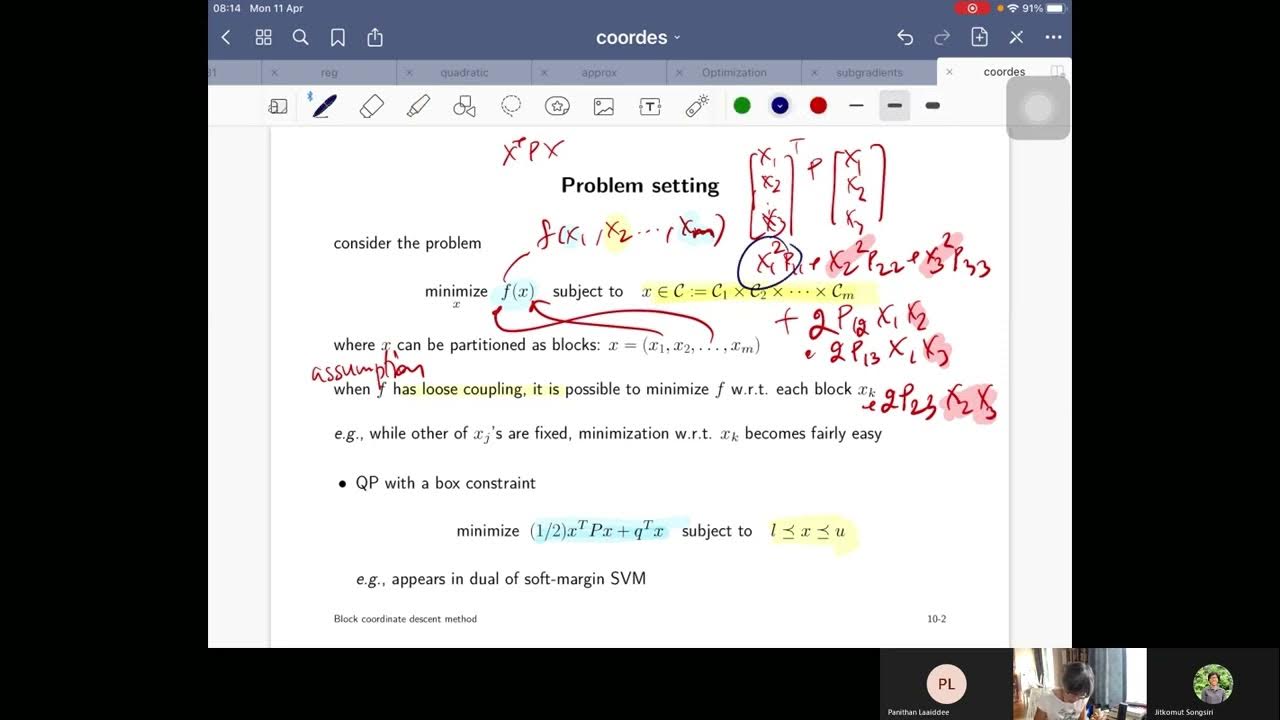 08:14 Mon 11 Apr
91%
coordes
31 reg quadratic approx Optimization subgradients coordes
x^T P x
[x_1 x_2 x_3]^T P [x_1 x_2 x_3]
Problem setting
f(x_1, x_2 ..., x_m)
consider the problem
x_1^2 P_11 + x_2^2 P_22 + x_3^2 P_33
minimize f(x) subject to x ∈ C := C_1 × C_2 × ⋯ × C_m
x
+ 2P_12 x_1 x_2
where x can be partitioned as blocks: x = (x_1, x_2, …, x_m)
+ 2P_13 x_1 x_3
assumption
when f has loose coupling, it is possible to minimize f w.r.t. each block x_k
+ 2P_23 x_2 x_3
e.g., while other of x_j's are fixed, minimization w.r.t. x_k becomes fairly easy
• QP with a box constraint
minimize (1/2)x^T Px + q^T x subject to l ⪯ x ⪯ u
e.g., appears in dual of soft-margin SVM
Block coordinate descent method 10-2
PL
Panithan Laaiddee
Jitkomut Songsiri